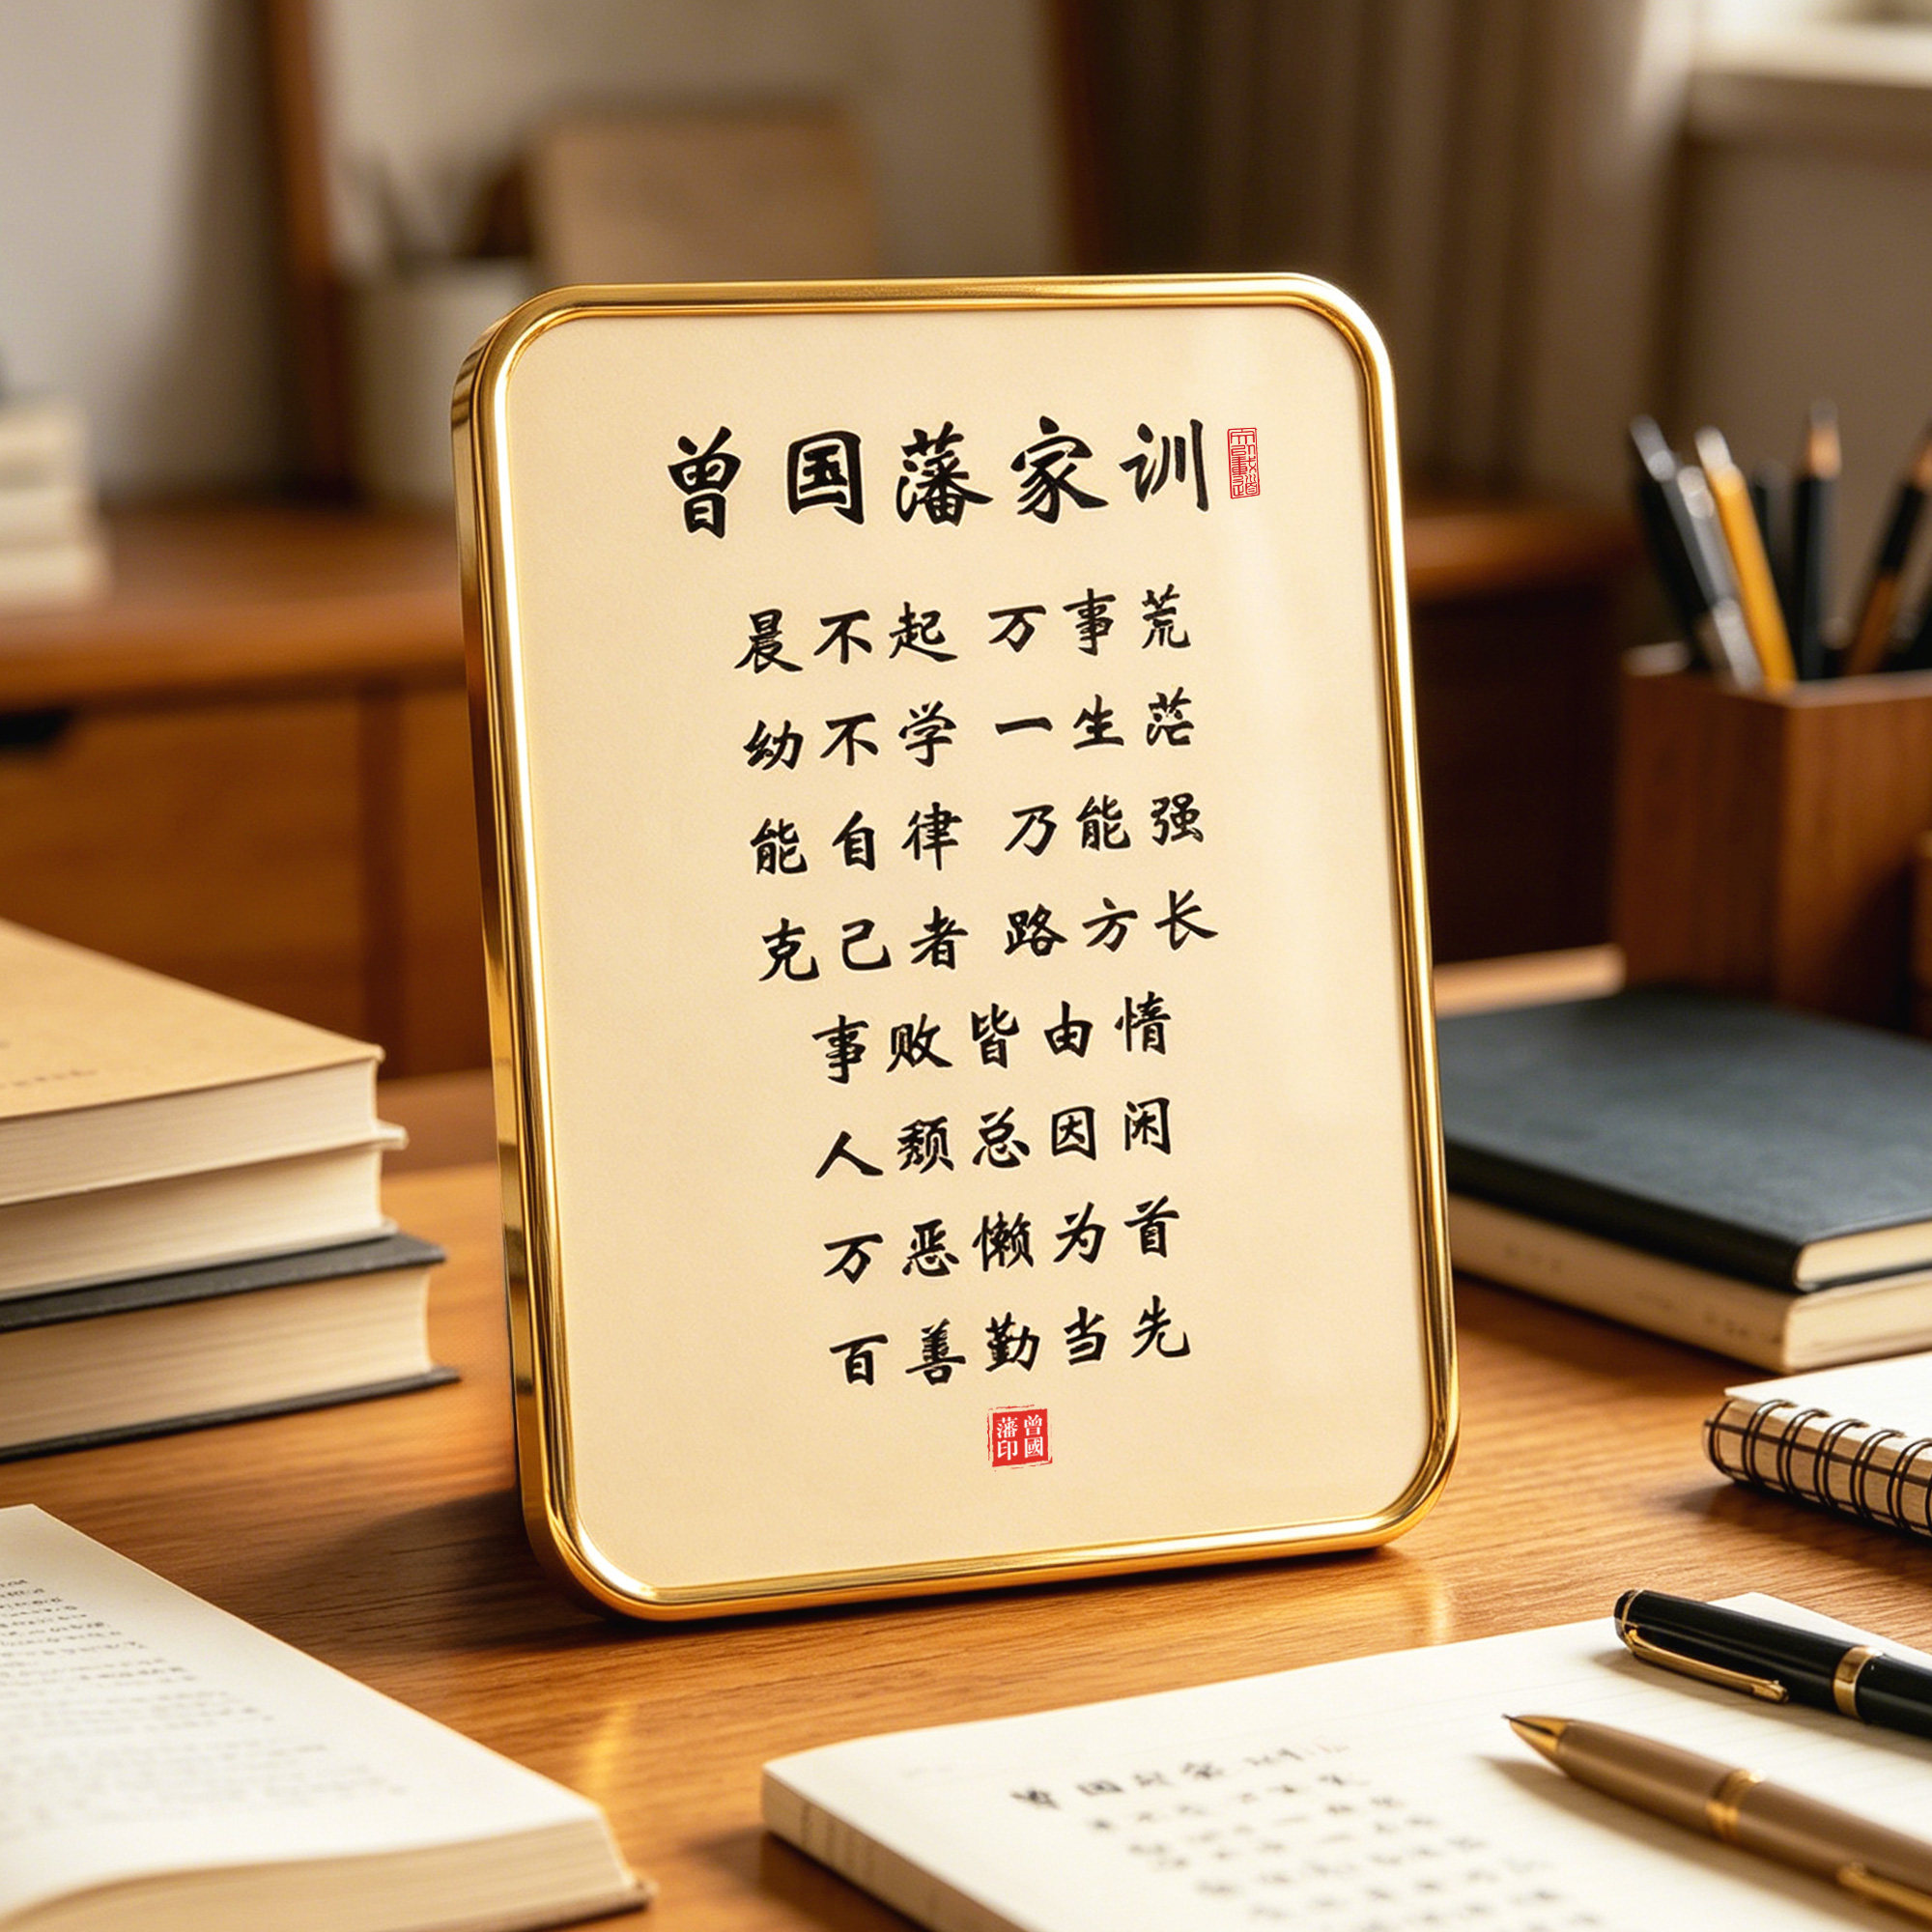 曾国藩家训
晨不起 万事荒
幼不学 一生茫
能自律 乃能强
克己者 路方长
事败皆由惰
人颓总因闲
万恶懒为首
百善勤当先
曾國藩印